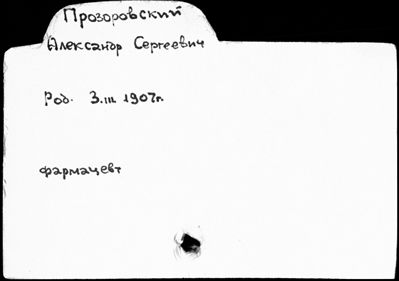 Прозоровский
Александр Сергеевич
Род. 3.III 1907г.
фармацевт